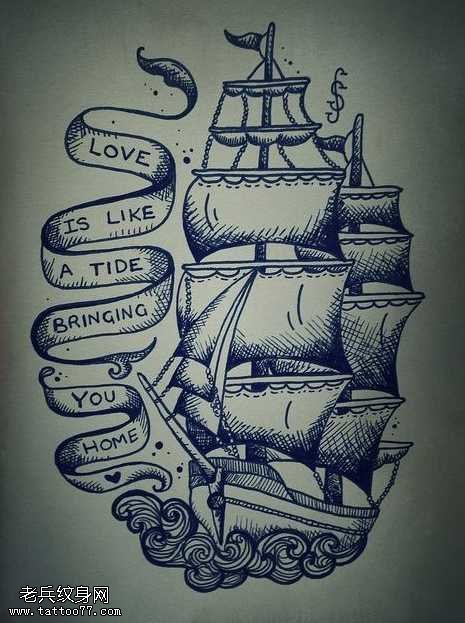 LOVE
IS LIKE
A TIDE
BRINGING
YOU
HOME
老兵纹身网
www.tattoo77.com